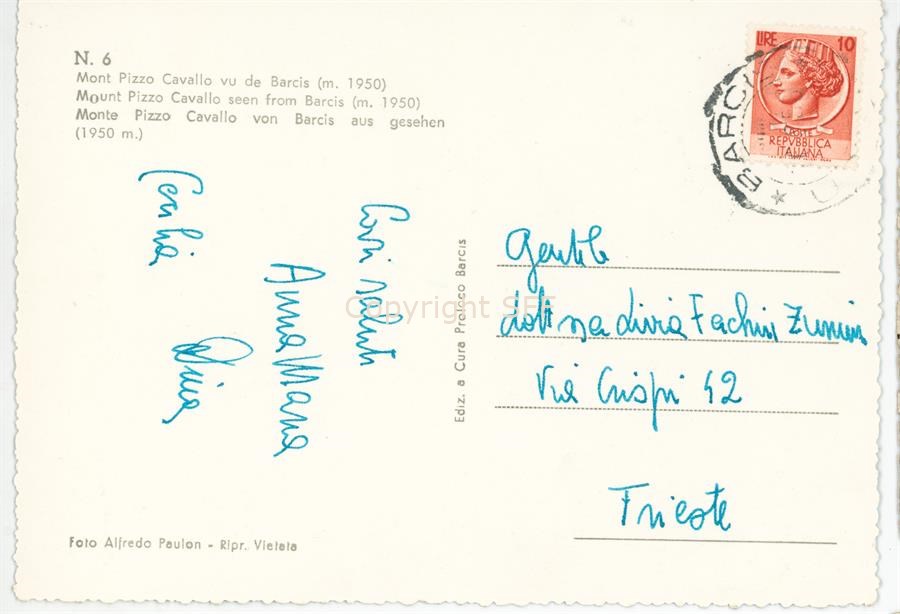 N. 6
Mont Pizzo Cavallo vu de Barcis (m. 1950)
Mount Pizzo Cavallo seen from Barcis (m. 1950)
Monte Pizzo Cavallo von Barcis aus gesehen
(1950 m.)
LIRE 10
POSTE
REPVBBLICA
ITALIANA
BARCI
Cari saluti
Anna Maria
Ediz. a Cura Proloco Barcis
Gentile
dott ssa Livia Fachin
Via Crispi 42
Trieste
Foto Alfredo Paulon - Ripr. Vietata
Copyright SFF